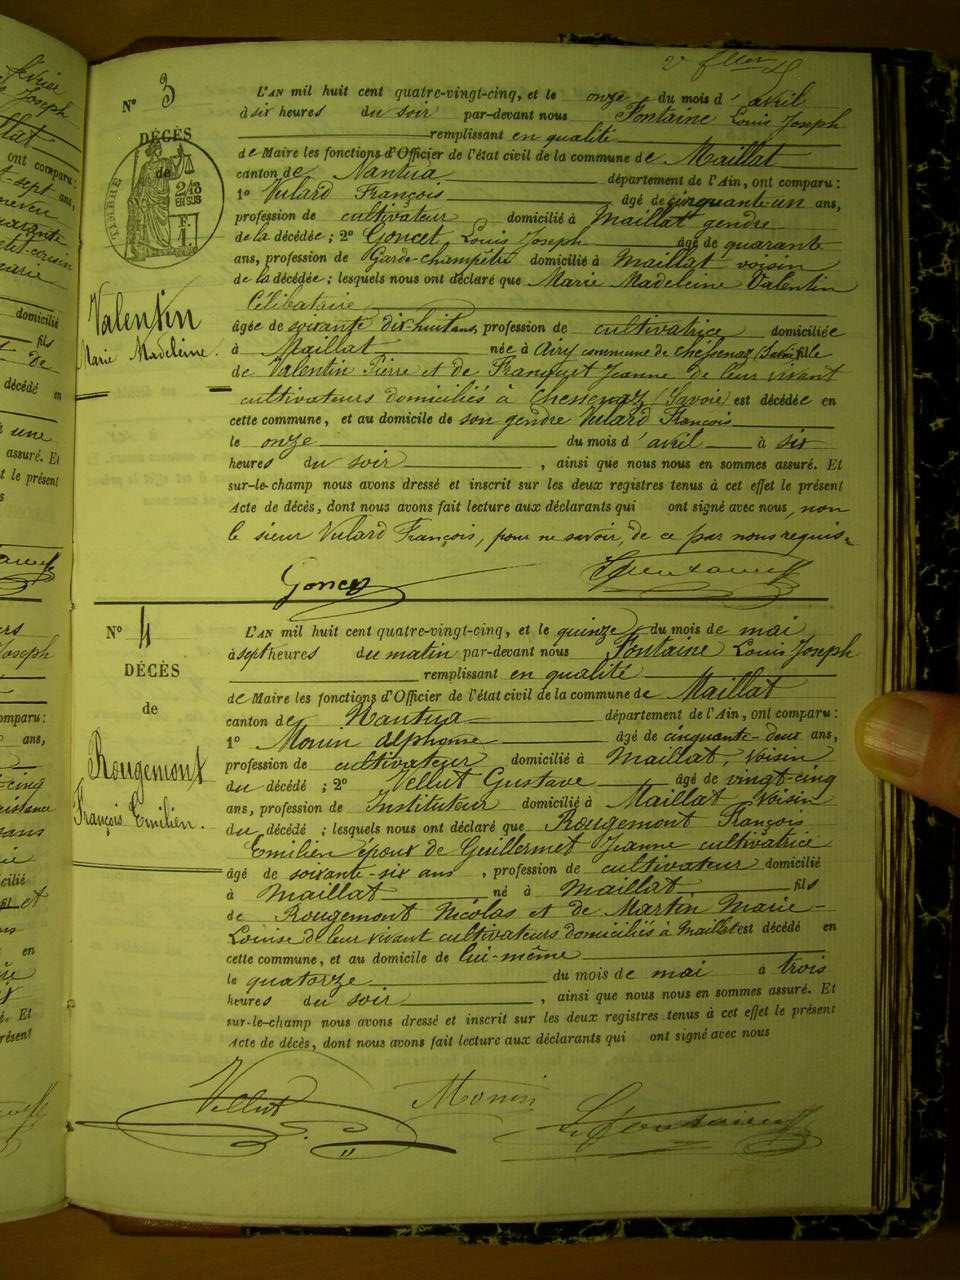 N° 3
DÉCÈS
de
TIMBRE
2/10
EN SUS
F.
1.
Valentin
Marie Madeleine.
L'AN mil huit cent quatre-vingt-cinq, et le onze du mois d'avril
à six heures du soir par-devant nous Fontaine Louis Joseph
remplissant en qualité
de Maire les fonctions d'Officier de l'état civil de la commune de Maillat
canton de Nantua département de l'Ain, ont comparu :
1° Vulard François âgé de cinquante un ans,
profession de cultivateur domicilié à Maillat gendre
de la décédée ; 2° Goncet Louis Joseph âgé de quarante
ans, profession de Garde-champêtre domicilié à Maillat voisin
de la décédée ; lesquels nous ont déclaré que Marie Madeleine Valentin
Célibataire
âgée de soixante dix-huit ans, profession de cultivatrice domiciliée
à Maillat née à Airy commune de Chessenaz (Savoie) fille
de Valentin Pierre et de Franquet Jeanne de leur vivant
cultivateurs domiciliés à Chessenaz (Savoie) est décédée en
cette commune, et au domicile de son gendre Vulard François
le onze du mois d'avril à six
heures du soir , ainsi que nous nous en sommes assuré. Et
sur-le-champ nous avons dressé et inscrit sur les deux registres tenus à cet effet le présent
Acte de décès, dont nous avons fait lecture aux déclarants qui ont signé avec nous, non
le sieur Vulard François, pour ne savoir, de ce par nous requis.
Goncet
N° 4
DÉCÈS
de
Rougemont
François Emilien.
L'AN mil huit cent quatre-vingt-cinq, et le quinze du mois de mai
à sept heures du matin par-devant nous Fontaine Louis Joseph
remplissant en qualité
de Maire les fonctions d'Officier de l'état civil de la commune de Maillat
canton de Nantua département de l'Ain, ont comparu :
1° Monin Alphonse âgé de cinquante-deux ans,
profession de cultivateur domicilié à Maillat, Voisin
du décédé ; 2° Vellut Gustave âgé de vingt-cinq
ans, profession de Instituteur domicilié à Maillat Voisin
du décédé ; lesquels nous ont déclaré que Rougemont François
Emilien époux de Guillermet Jeanne cultivatrice
âgé de soixante-six ans , profession de cultivateur domicilié
à Maillat né à Maillat fils
de Rougemont Nicolas et de Martin Marie-
Louise de leur vivant cultivateurs domiciliés à Maillat est décédé en
cette commune, et au domicile de lui-même
le quatorze du mois de mai à trois
heures du soir , ainsi que nous nous en sommes assuré. Et
sur-le-champ nous avons dressé et inscrit sur les deux registres tenus à cet effet le présent
Acte de décès, dont nous avons fait lecture aux déclarants qui ont signé avec nous
Vellut Monin